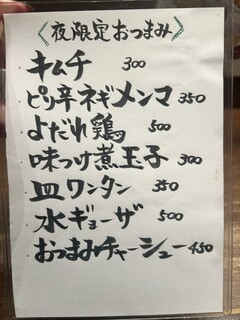 夜限定おつまみ
キムチ 300
ピリ辛ネギメンマ 350
よだれ鶏 500
味つけ煮玉子 300
皿ワンタン 350
水ギョーザ 500
おつまみチャーシュー 450